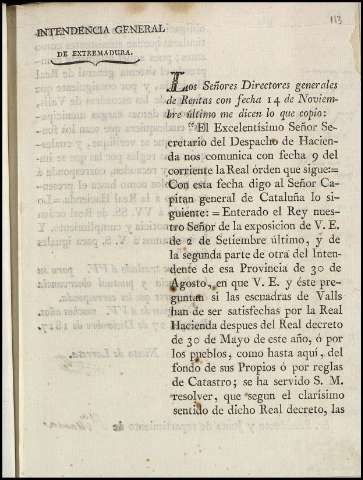 113
INTENDENCIA GENERAL
DE EXTREMADURA.
Los Señores Directores generales
de Rentas con fecha 14 de Noviem-
bre último me dicen lo que copio:
"El Excelentísimo Señor Se-
cretario del Despacho de Hacien-
da nos comunica con fecha 9 del
corriente la Real órden que sigue:=
Con esta fecha digo al Señor Ca-
pitan general de Cataluña lo si-
guiente: = Enterado el Rey nues-
tro Señor de la exposicion de V. E.
de 2 de Setiembre último, y de
la segunda parte de otra del Inten-
dente de esa Provincia de 30 de
Agosto, en que V. E. y éste pre-
guntan si las escuadras de Valls
han de ser satisfechas por la Real
Hacienda despues del Real decreto
de 30 de Mayo de este año, ó por
los pueblos, como hasta aquí, del
fondo de sus Propios ó por reglas
de Catastro; se ha servido S. M.
resolver, que segun el clarísimo
sentido de dicho Real decreto, las